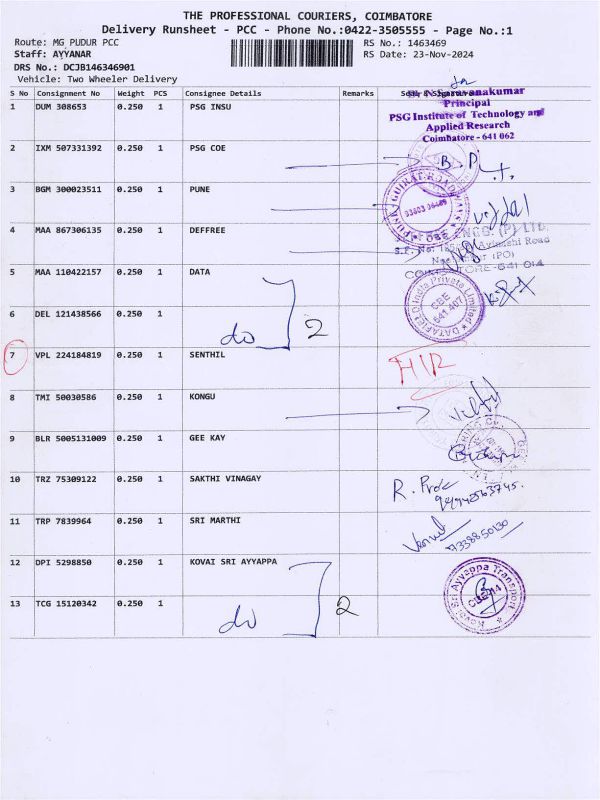 THE PROFESSIONAL COURIERS, COIMBATORE
Delivery Runsheet - PCC - Phone No.:0422-3505555 - Page No.:1
Route: MG PUDUR PCC RS No.: 1463469
Staff: AYYANAR RS Date: 23-Nov-2024
DRS No.: DCJB146346901
Vehicle: Two Wheeler Delivery
S No Consignment No Weight PCS Consignee Details Remarks
1 DUM 308653 0.250 1 PSG INSU
Principal
PSG Institute of Technology and
Applied Research
Coimbatore - 641 062
2 IXM 507331392 0.250 1 PSG COE
3 BGM 300023511 0.250 1 PUNE
4 MAA 867306135 0.250 1 DEFFREE
COIMBATORE-641 014
5 MAA 110422157 0.250 1 DATA
DATAFIELD India Private Limited
CBE
641 407
6 DEL 121438566 0.250 1 do 2
7 VPL 224184819 0.250 1 SENTHIL
8 TMI 50030586 0.250 1 KONGU
9 BLR 5005131009 0.250 1 GEE KAY
10 TRZ 75309122 0.250 1 SAKTHI VINAGAY
11 TRP 7839964 0.250 1 SRI MARTHI
7338850130
12 DPI 5298850 0.250 1 KOVAI SRI AYYAPPA
Kovai Sri Ayyappa Transport
13 TCG 15120342 0.250 1 do 2